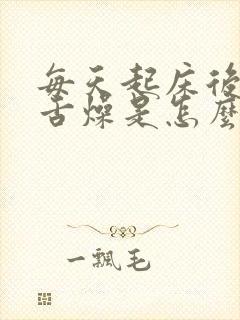 每天起床後
舌燥是怎麼
一飄毛